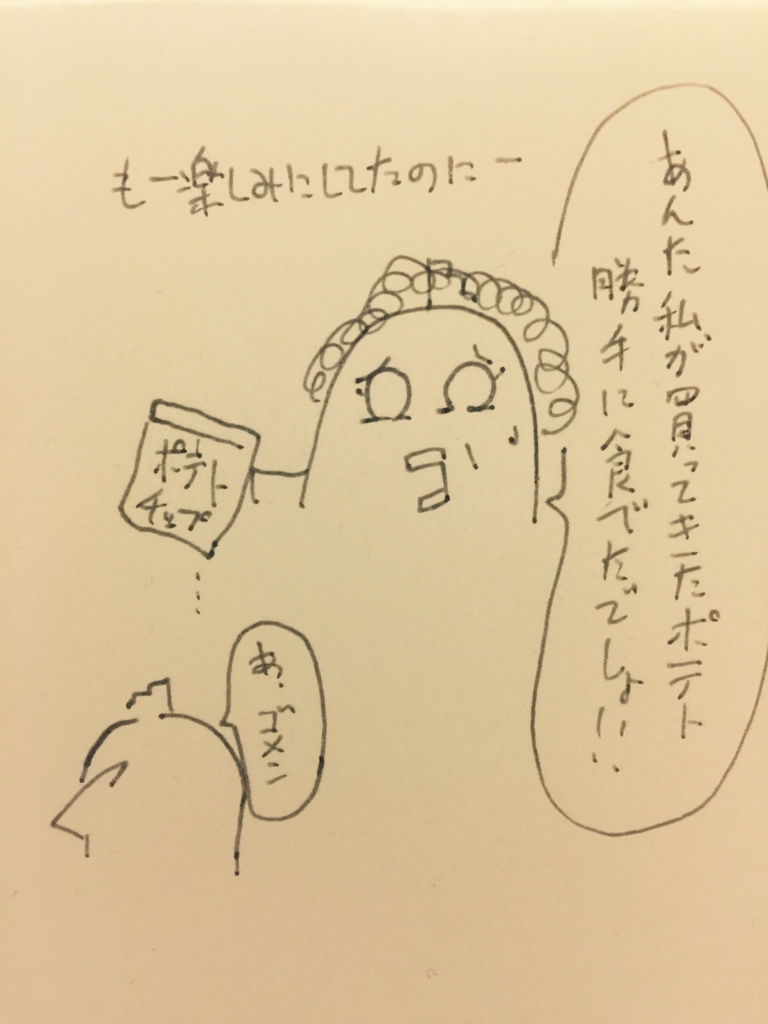 あんた私が買ってきたポテト
勝手に食べたでしょ!!
もー楽しみにしてたのにー
ポテト
チップ
…
あ、ゴメン